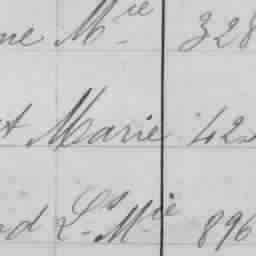 ne M.ie 328
t Marie 42
d Ls Mie 896